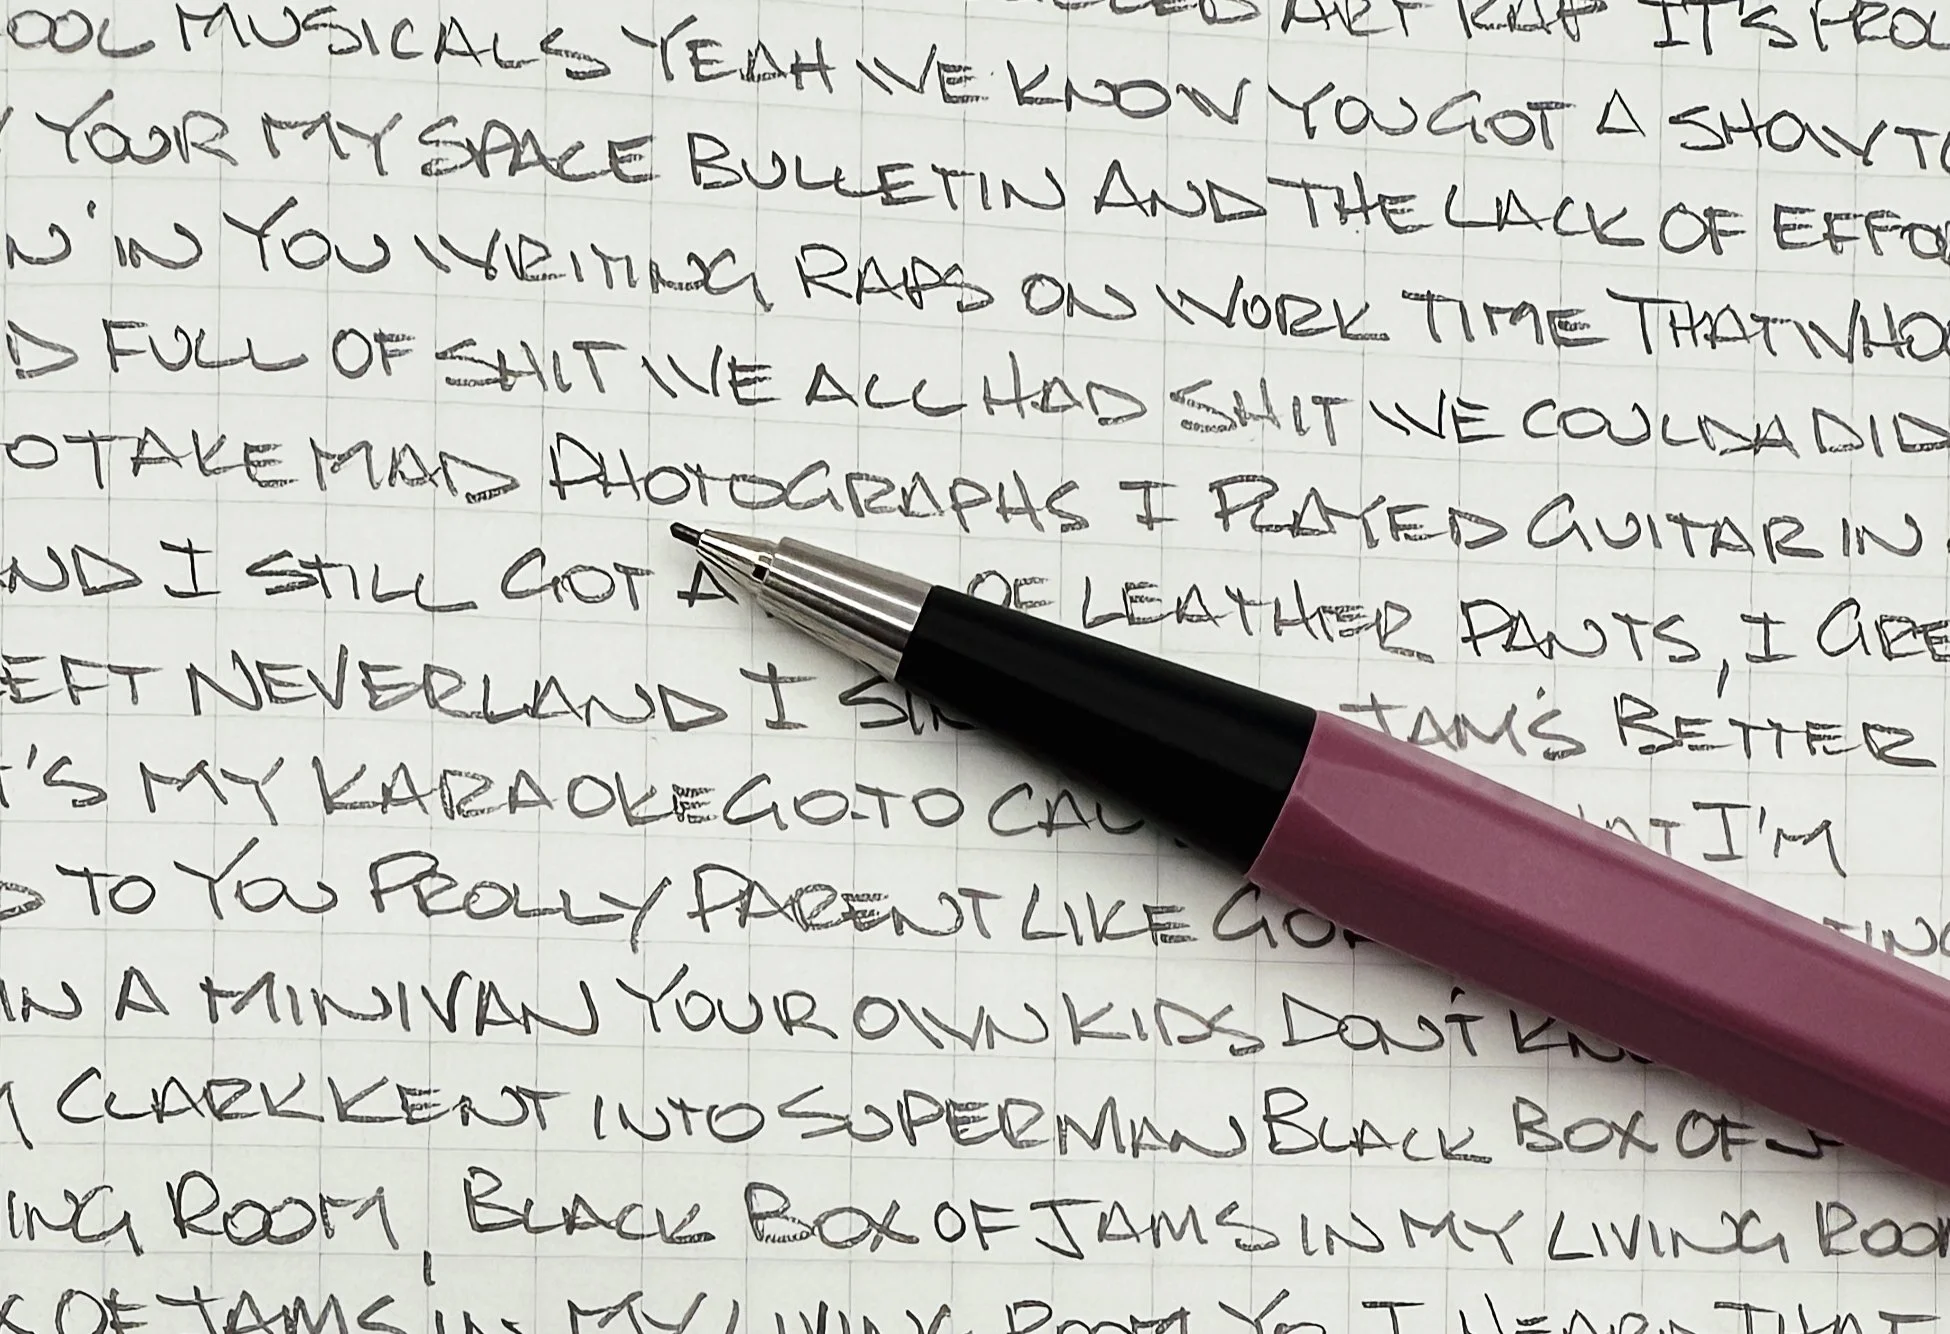 ART RAP IT'S
MUSICALS YEAH WE KNOW YOU GOT A SHOW
YOUR MY SPACE BULLETIN AND THE LACK OF
IN YOU WRITING RAPS ON WORK TIME THAT
FULL OF SHIT WE ALL HAD SHIT WE COULDA DID
TAKE MAD PHOTOGRAPHS I PLAYED GUITAR IN
I STILL GOT A OF LEATHER PANTS, I
NEVERLAND I JAM'S BETTER
MY KARAOKE GO-TO I'M
TO YOU PROLLY PARENT LIKE
IN A MINIVAN YOUR OWN KIDS DON'T
CLARK KENT INTO SUPERMAN BLACK BOX OF
ROOM, BLACK BOX OF JAMS IN MY LIVING ROOM
OF JAMS IN MY LIVING ROOM YO I HEARD THAT